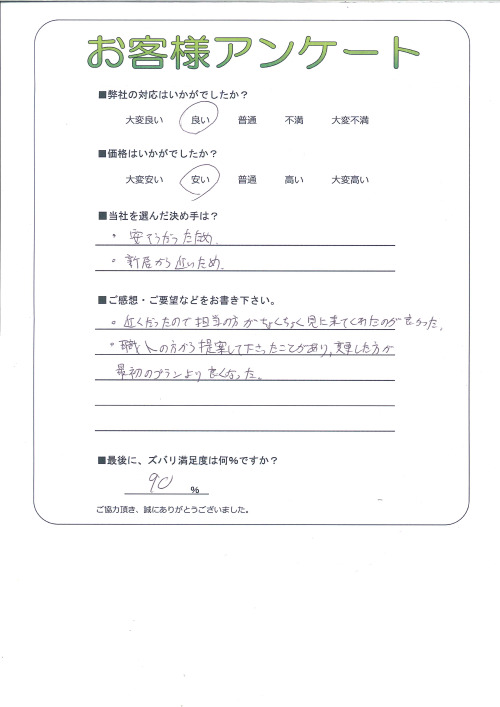 お客様アンケート
■弊社の対応はいかがでしたか？
大変良い 良い 普通 不満 大変不満
■価格はいかがでしたか？
大変安い 安い 普通 高い 大変高い
■当社を選んだ決め手は？
・安そうだったため.
・新居から近いため.
■ご感想・ご要望などをお書き下さい。
・近くだったので担当の方がちょくちょく見に来てくれたのが良かった.
・職人の方から提案して下さったことがあり、変更した方が
最初のプランより良くなった。
■最後に、ズバリ満足度は何％ですか？
90 ％
ご協力頂き、誠にありがとうございました。